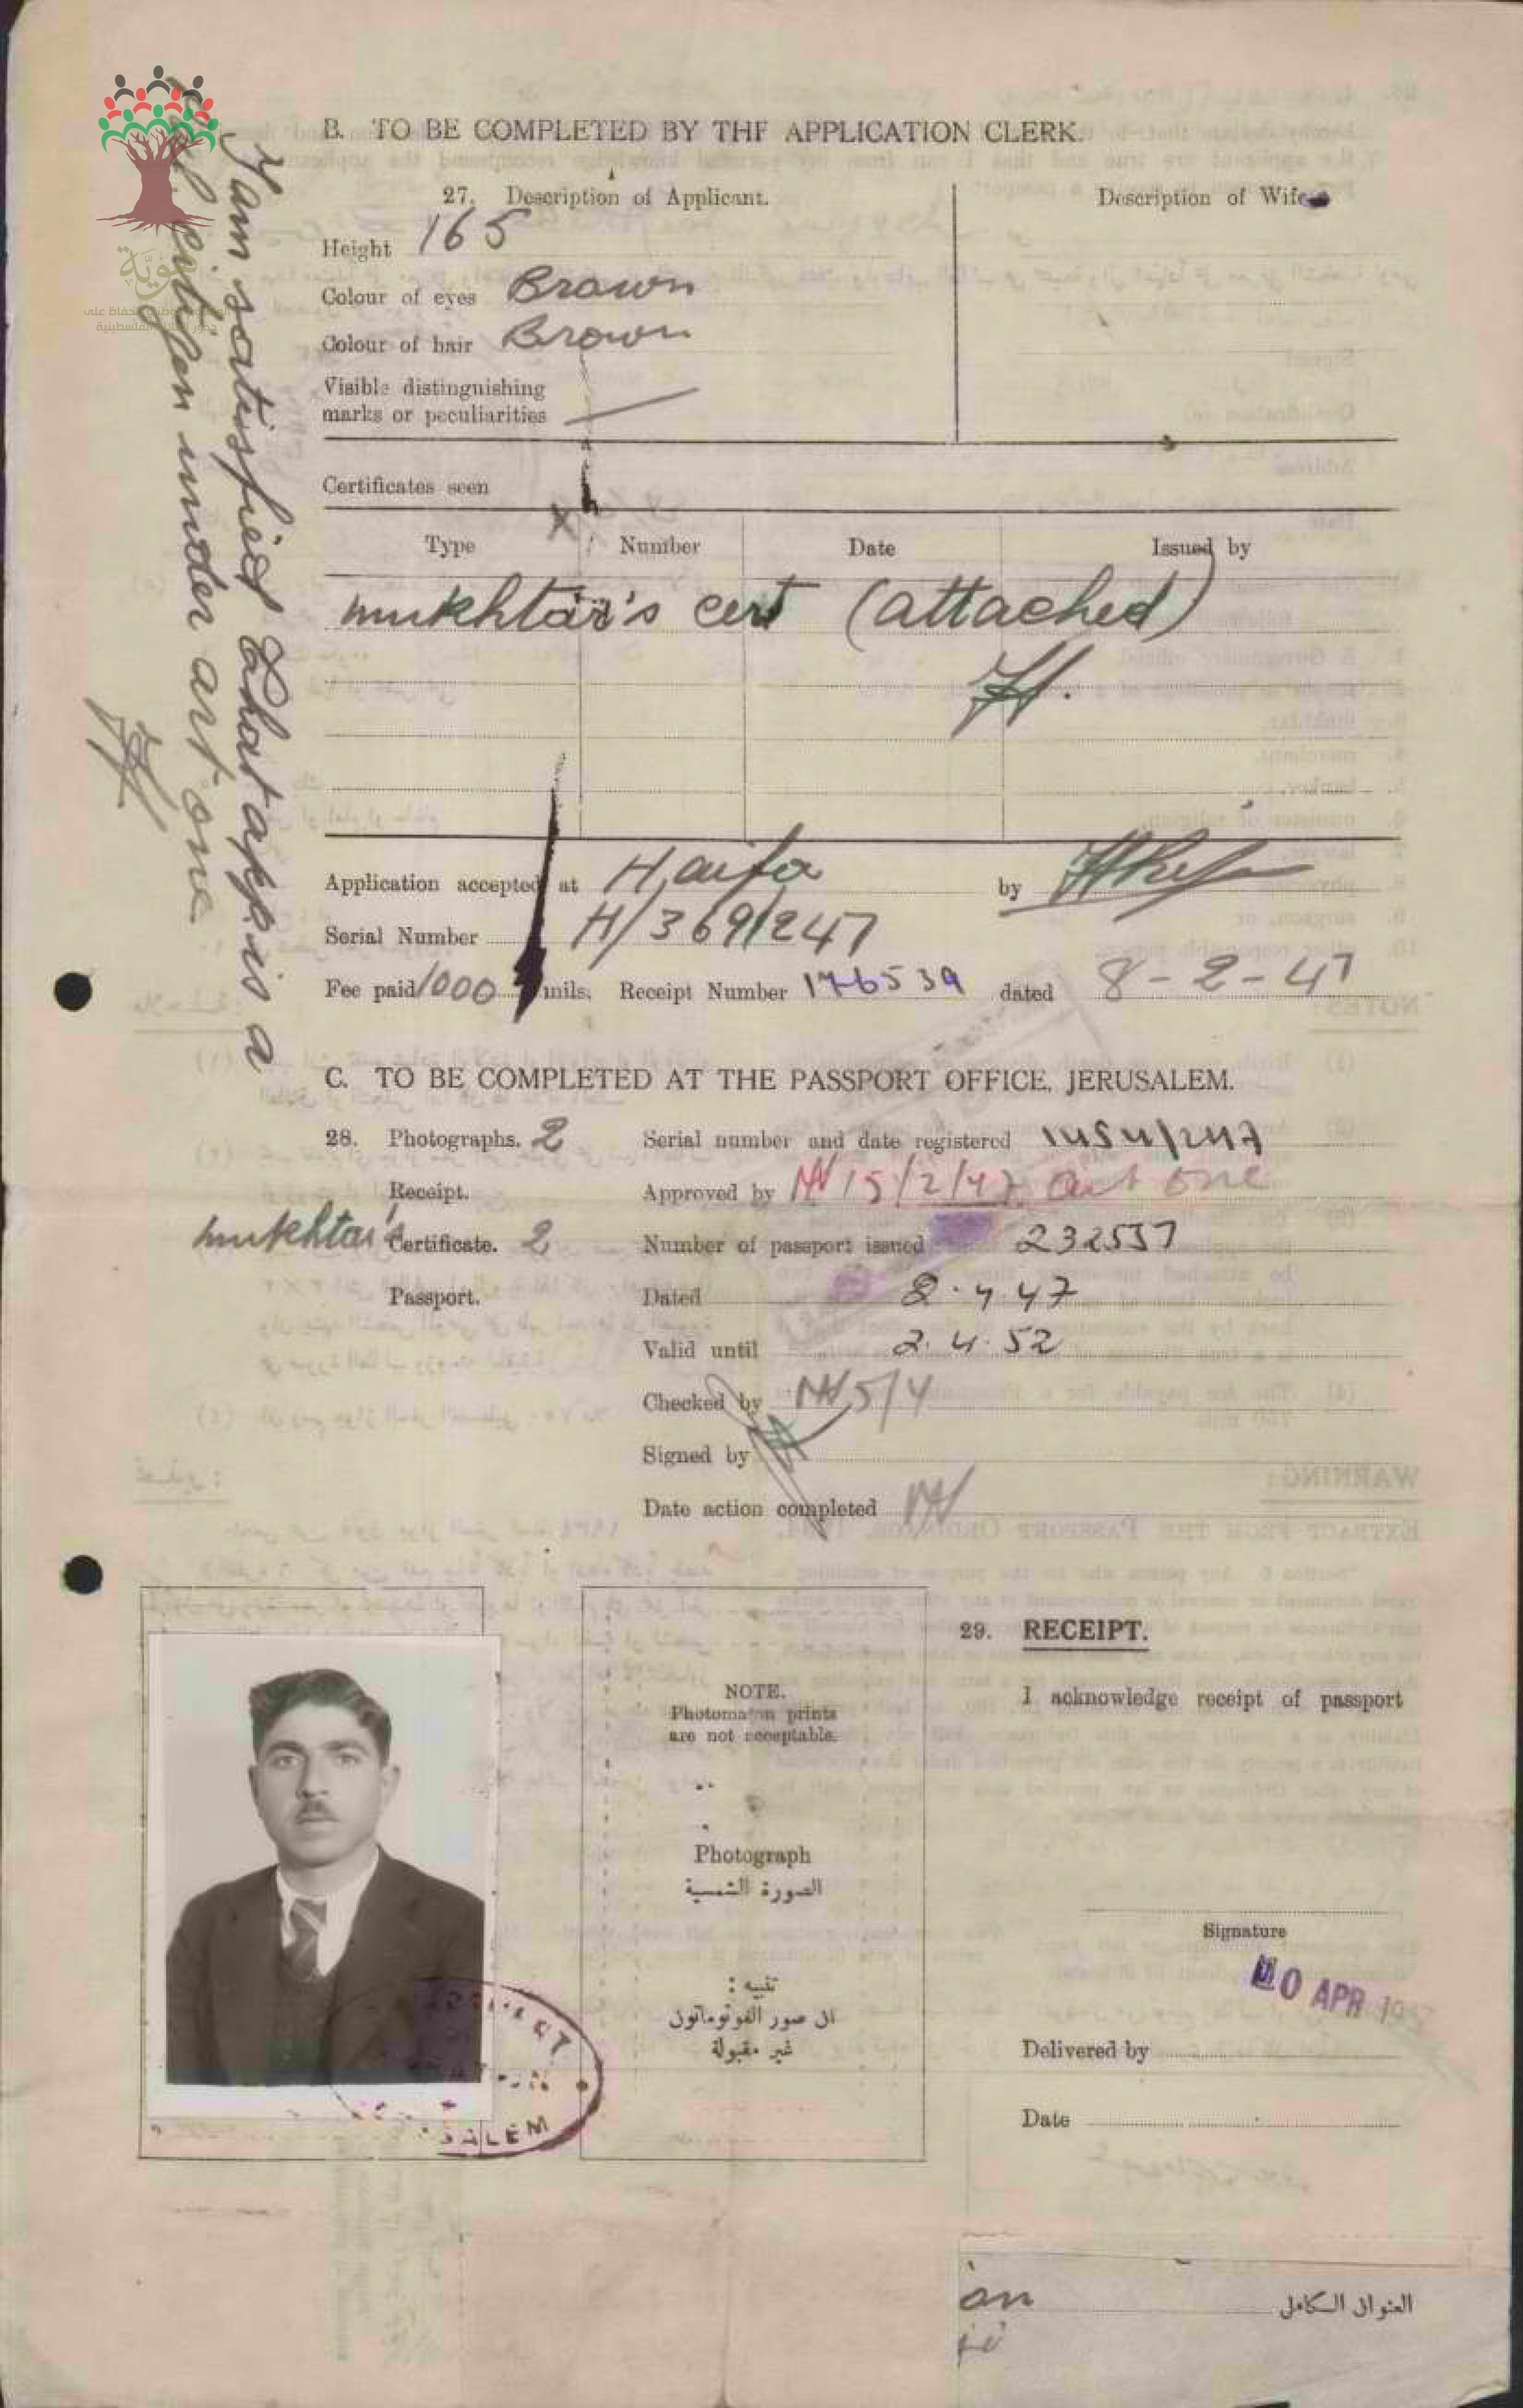 B. TO BE COMPLETED BY THE APPLICATION CLERK.
27. Description of Applicant.
Description of Wife
Height 165
Colour of eyes Brown
Colour of hair Brown
Visible distinguishing
marks or peculiarities
Certificates seen
Type Number Date Issued by
mukhtar's cert (attached)
Application accepted at Haifa by
Serial Number H/3691247
Fee paid 1000 mils. Receipt Number 176539 dated 8-2-47
I am satisfied that app. is a
Pal. citizen under art one
C. TO BE COMPLETED AT THE PASSPORT OFFICE, JERUSALEM.
28. Photographs. 2 Serial number and date registered
Receipt. Approved by 15/2/47 art one
mukhtar's Certificate. 2 Number of passport issued 232557
Passport. Dated 2.4.47
Valid until 2.4.52
Checked by 5/4
Signed by
Date action completed
NOTE.
Photomaton prints
are not acceptable.
Photograph
الصورة الشمسية
تنبيه :
ان صور الفوتوماتون
غير مقبولة
29. RECEIPT.
I acknowledge receipt of passport
Signature
APR
Delivered by
Date
العنوان الكامل